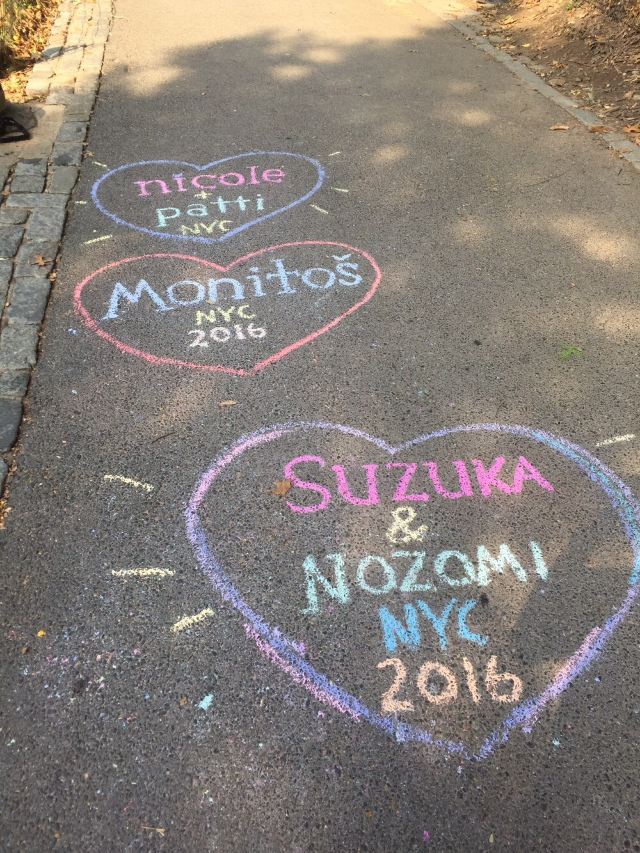 nicole
+
patti
NYC
Monitoš
NYC
2016
SUZUKA
&
NOZOMI
NYC
2016